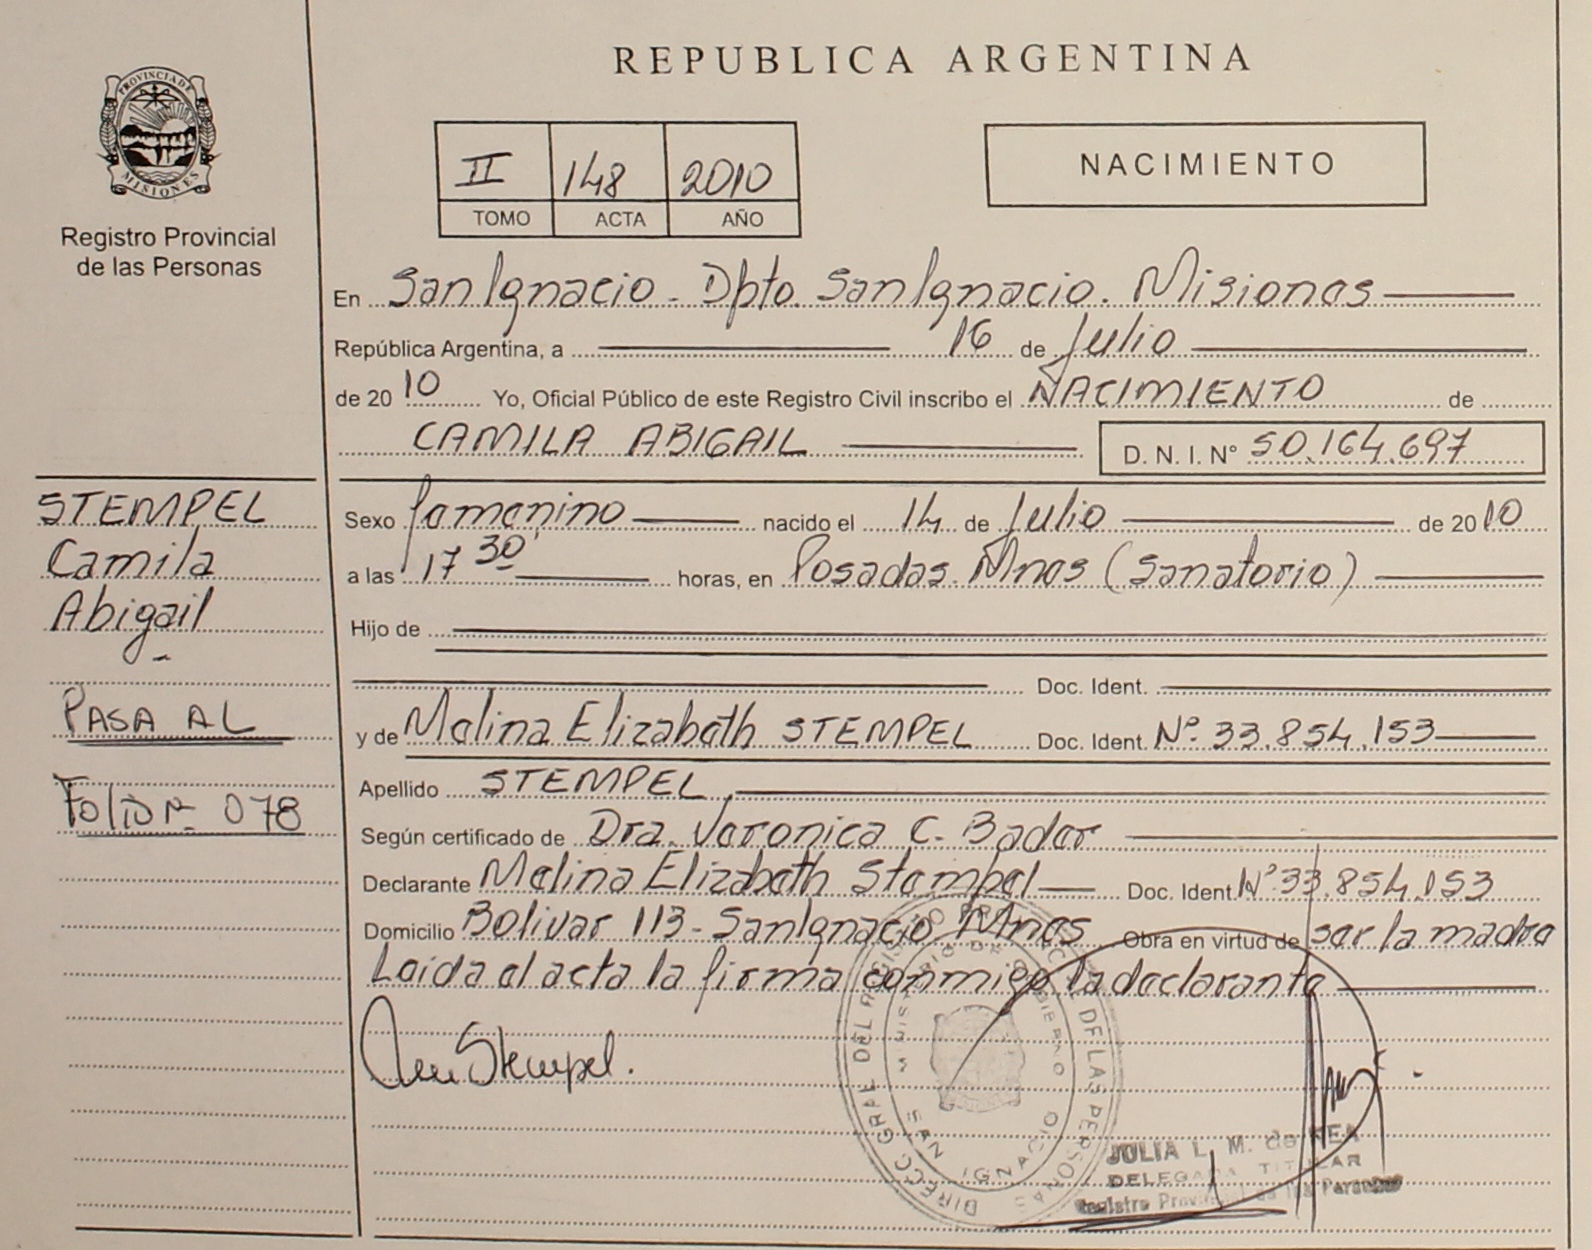 REPUBLICA ARGENTINA
PROVINCIA DE
MISIONES
Registro Provincial
de las Personas
II 148 2010
TOMO ACTA AÑO
NACIMIENTO
En San Ignacio - Dpto. San Ignacio. Misiones
República Argentina, a 16 de Julio
de 2010 Yo, Oficial Público de este Registro Civil inscribo el NACIMIENTO de
CAMILA ABIGAIL D. N. I. Nº 50.164.697
STEMPEL
Camila
Abigail
PASA AL
Folio Nº 078
Sexo femenino nacido el 14 de Julio de 2010
a las 17 30' horas, en Posadas. Mnes (Sanatorio)
Hijo de
Doc. Ident.
y de Melina Elizabeth STEMPEL Doc. Ident. Nº. 33.854.153
Apellido STEMPEL
Según certificado de Dra. Veronica C. Bader
Declarante Melina Elizabeth Stempel Doc. Ident. Nº 33.854.153
Domicilio Bolivar 113 - San Ignacio. Mnes Obra en virtud de ser la madre
Leida el acta la firma conmigo la declarante
Stempel.
DIRECC GRAL DEL REGISTRO PROVINCIAL DE LAS PERSONAS
MINISTERIO DE GOBIERNO
SAN IGNACIO
JULIA L. M. de REA
DELEGADA TITULAR
Registro Provincial de las Personas